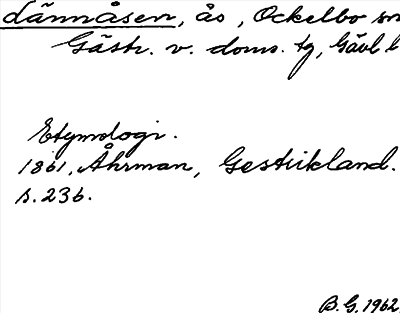 dännåsen, ås, Ockelbo sn
Gästr. v. doms. tg, Gävl. l
Etymologi.
1861, Åhrman, Gestrikland.
s. 236.
B. G. 1962.